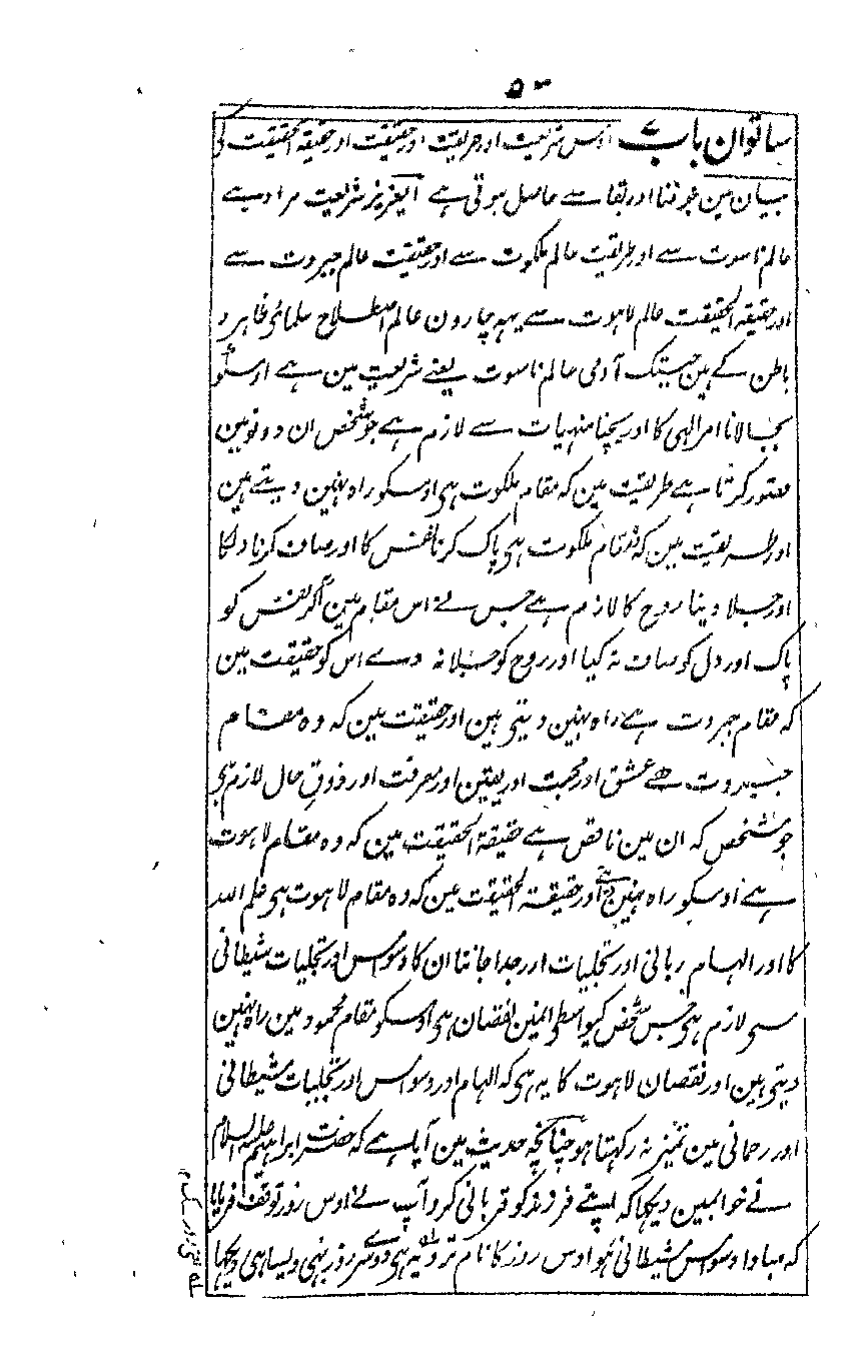 ۵۳
ساتوان باب اوس شریعت اور طریقت اور حقیقت اور حقیقۃ الحقیقت کی
بیان مین جو فنا اور بقا سے حاصل ہوتی ہے ایعزیز شریعت مراد ہے
عالم ناسوت سے اور طریقت عالم ملکوت سے اور حقیقت عالم جبروت سے
اور حقیقۃ الحقیقت عالم لاہوت سے یہہ چارون عالم اصطلاح علمائی ظاہر و
باطن کے ہین جبتک آدمی عالم ناسوت یعنے شریعت مین ہے اوسکو
بجالانا امر الہی کا اور بچنا منہیات سے لازم ہے جو شخص ان دونو مین
قصور کرتا ہے طریقت مین کہ مقام ملکوت ہی اوسکو راہ نہین دیتے ہین
اور طریقت مین کہ مقام ملکوت ہی پاک کرنا نفس کا اور صاف کرنا دلکا
اور جلا دینا روح کا لازم ہے جس نے اس مقام مین اگر نفس کو
پاک اور دل کو صاف نہ کیا اور روح کو جلا نہ دے اس کو حقیقت مین
کہ مقام جبروت ہے راہ نہین دیتی ہین اور حقیقت مین کہ وہ مقام
جبروت ہے عشق اور محبت اور یقین اور معرفت اور ذوق حال لازم ہے
جو شخص کہ ان مین ناقص ہے حقیقۃ الحقیقت مین کہ وہ مقام لاہوت
ہے اوسکو راہ نہین دیتے اور حقیقۃ الحقیقت مین کہ وہ مقام لاہوت ہی علم اللہ
کا اور الہام ربانی اور تجلیات اور جدا جاننا ان کا وسواس اور تجلیات شیطانی
سی لازم ہی جس شخص کیواسطی انمین نقصان ہی اوسکو مقام محمود مین راہ نہین
دیتی ہین اور نقصان لاہوت کا یہ ہی کہ الہام اور وسواس اور تجلیات شیطانی
اور رحمانی مین تمیز نہ رکہتا ہو چنانچہ حدیث مین آیا ہے کہ حضرت ابراہیم علیہ السلام
نے خوابمین دیکہا کہ اپنے فرزند کو قربانی کرو آپ نے اوس روز توقف فرمایا
کہ مبادا وسواس شیطانی ہو اوس روز کا نام ترویہ ہی دوسرے روز بہی ویسا ہی دیکہا